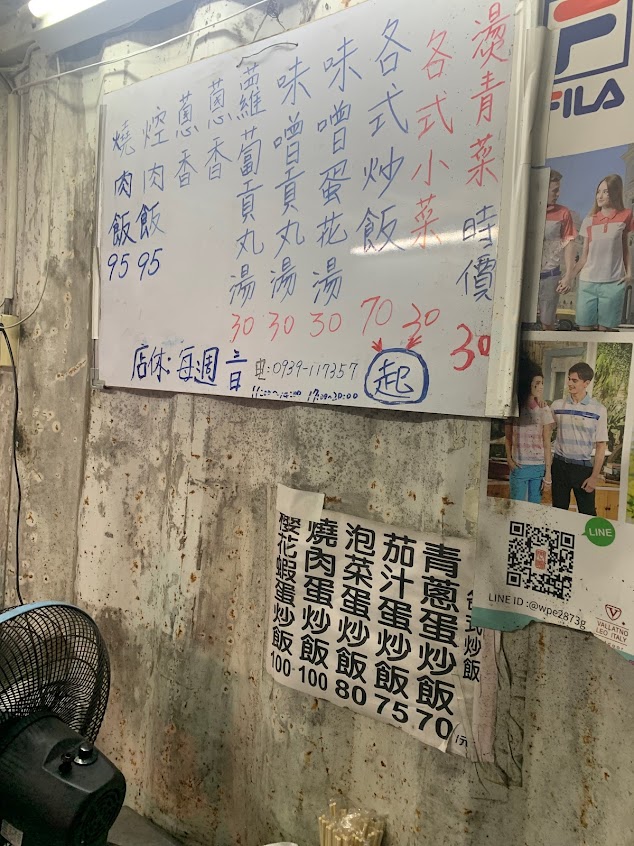 燙青菜 時價 30
各式小菜 30
各式炒飯 70
味噌蛋花湯 30
味噌貢丸湯 30
蘿蔔貢丸湯 30
蔥香
蔥香
焢肉飯 95
燒肉飯 95
起
店休:每週
电:0939-117357
FILA
各式炒飯
青蔥蛋炒飯 70
茄汁蛋炒飯 75
泡菜蛋炒飯 80
燒肉蛋炒飯 100
櫻花蝦蛋炒飯 100
LINE
LINE ID :@wpe2873g
VALLATNO
LEO ITALY